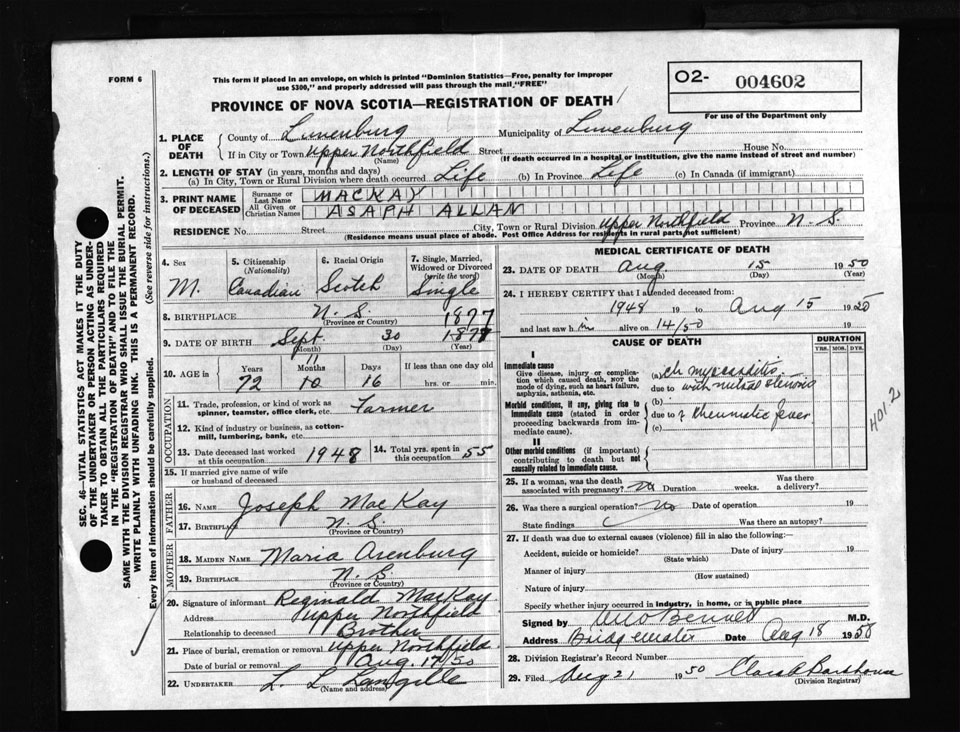 FORM 6
This form if placed in an envelope, on which is printed "Dominion Statistics—Free, penalty for improper
use $300," and properly addressed will pass through the mail "FREE"
O2- 004602
For use of the Department only
PROVINCE OF NOVA SCOTIA—REGISTRATION OF DEATH
1. PLACE OF DEATH
County of Lunenburg Municipality of Lunenburg
If in City or Town Upper Northfield Street House No.
(Name) (If death occurred in a hospital or institution, give the name instead of street and number)
2. LENGTH OF STAY (in years, months and days)
(a) In City, Town or Rural Division where death occurred Life (b) In Province Life (c) In Canada (if immigrant)
3. PRINT NAME OF DECEASED
Surname or Last Name MACKAY
All Given or Christian Names ASAPH ALLAN
RESIDENCE No. Street City, Town or Rural Division Upper Northfield Province N. S.
(Residence means usual place of abode. Post Office Address for residents in rural parts not sufficient)
4. Sex M.
5. Citizenship (Nationality) Canadian
6. Racial Origin Scotch
7. Single, Married, Widowed or Divorced (write the word) Single
8. BIRTHPLACE N. S.
(Province or Country)
1877
9. DATE OF BIRTH Sept. 30 1877
(Month) (Day) (Year)
10. AGE in Years Months Days If less than one day old
11
72 10 16 hrs. or min.
OCCUPATION
11. Trade, profession, or kind of work as spinner, teamster, office clerk, etc. Farmer
12. Kind of industry or business, as cotton-mill, lumbering, bank, etc.
13. Date deceased last worked at this occupation 1948
14. Total yrs. spent in this occupation 55
15. If married give name of wife or husband of deceased
FATHER
16. NAME Joseph MacKay
17. BIRTHPLACE N. S.
(Province or Country)
MOTHER
18. MAIDEN NAME Maria Arenburg
19. BIRTHPLACE N. S.
(Province or Country)
20. Signature of informant Reginald MacKay
Address Upper Northfield
Relationship to deceased Brother
21. Place of burial, cremation or removal Upper Northfield
Date of burial or removal Aug. 17/50
22. UNDERTAKER L. L. Langille
(Name and address)
MEDICAL CERTIFICATE OF DEATH
23. DATE OF DEATH Aug 15 1950
(Month) (Day) (Year)
24. I HEREBY CERTIFY that I attended deceased from:
1948 19 to Aug 15 1950
and last saw him alive on 14/50 19
CAUSE OF DEATH
DURATION
YRS. MOS. DYS.
I
Immediate cause
Give disease, injury or complication which caused death, NOT the mode of dying, such as heart failure, asphyxia, asthenia, etc.
(a) ch myocarditis
due to with mitral stenosis
Morbid conditions, if any, giving rise to immediate cause (stated in order proceeding backwards from immediate cause).
(b)
due to rheumatic fever
(c)
401.2
II
Other morbid conditions (if important) contributing to death but not causally related to immediate cause.
25. If a woman, was the death associated with pregnancy? Duration weeks. Was there a delivery?
26. Was there a surgical operation? No Date of operation 19
State findings Was there an autopsy?
27. If death was due to external causes (violence) fill in also the following:—
Accident, suicide or homicide? Date of injury 19
(State which)
Manner of injury
(How sustained)
Nature of injury
Specify whether injury occurred in industry, in home, or in public place
Signed by M.D.
Address Bridgewater Date Aug 18 1950
28. Division Registrar's Record Number
29. Filed Aug 21 1950 Clara
(Division Registrar)
SEC. 46—VITAL STATISTICS ACT MAKES IT THE DUTY
OF THE UNDERTAKER OR PERSON ACTING AS UNDER-
TAKER TO OBTAIN ALL THE PARTICULARS REQUIRED
IN THE "REGISTRATION OF DEATH" AND TO FILE THE
SAME WITH THE DIVISION REGISTRAR WHO SHALL ISSUE THE BURIAL PERMIT.
WRITE PLAINLY WITH UNFADING INK. THIS IS A PERMANENT RECORD.
Every item of information should be carefully supplied. (See reverse side for instructions.)